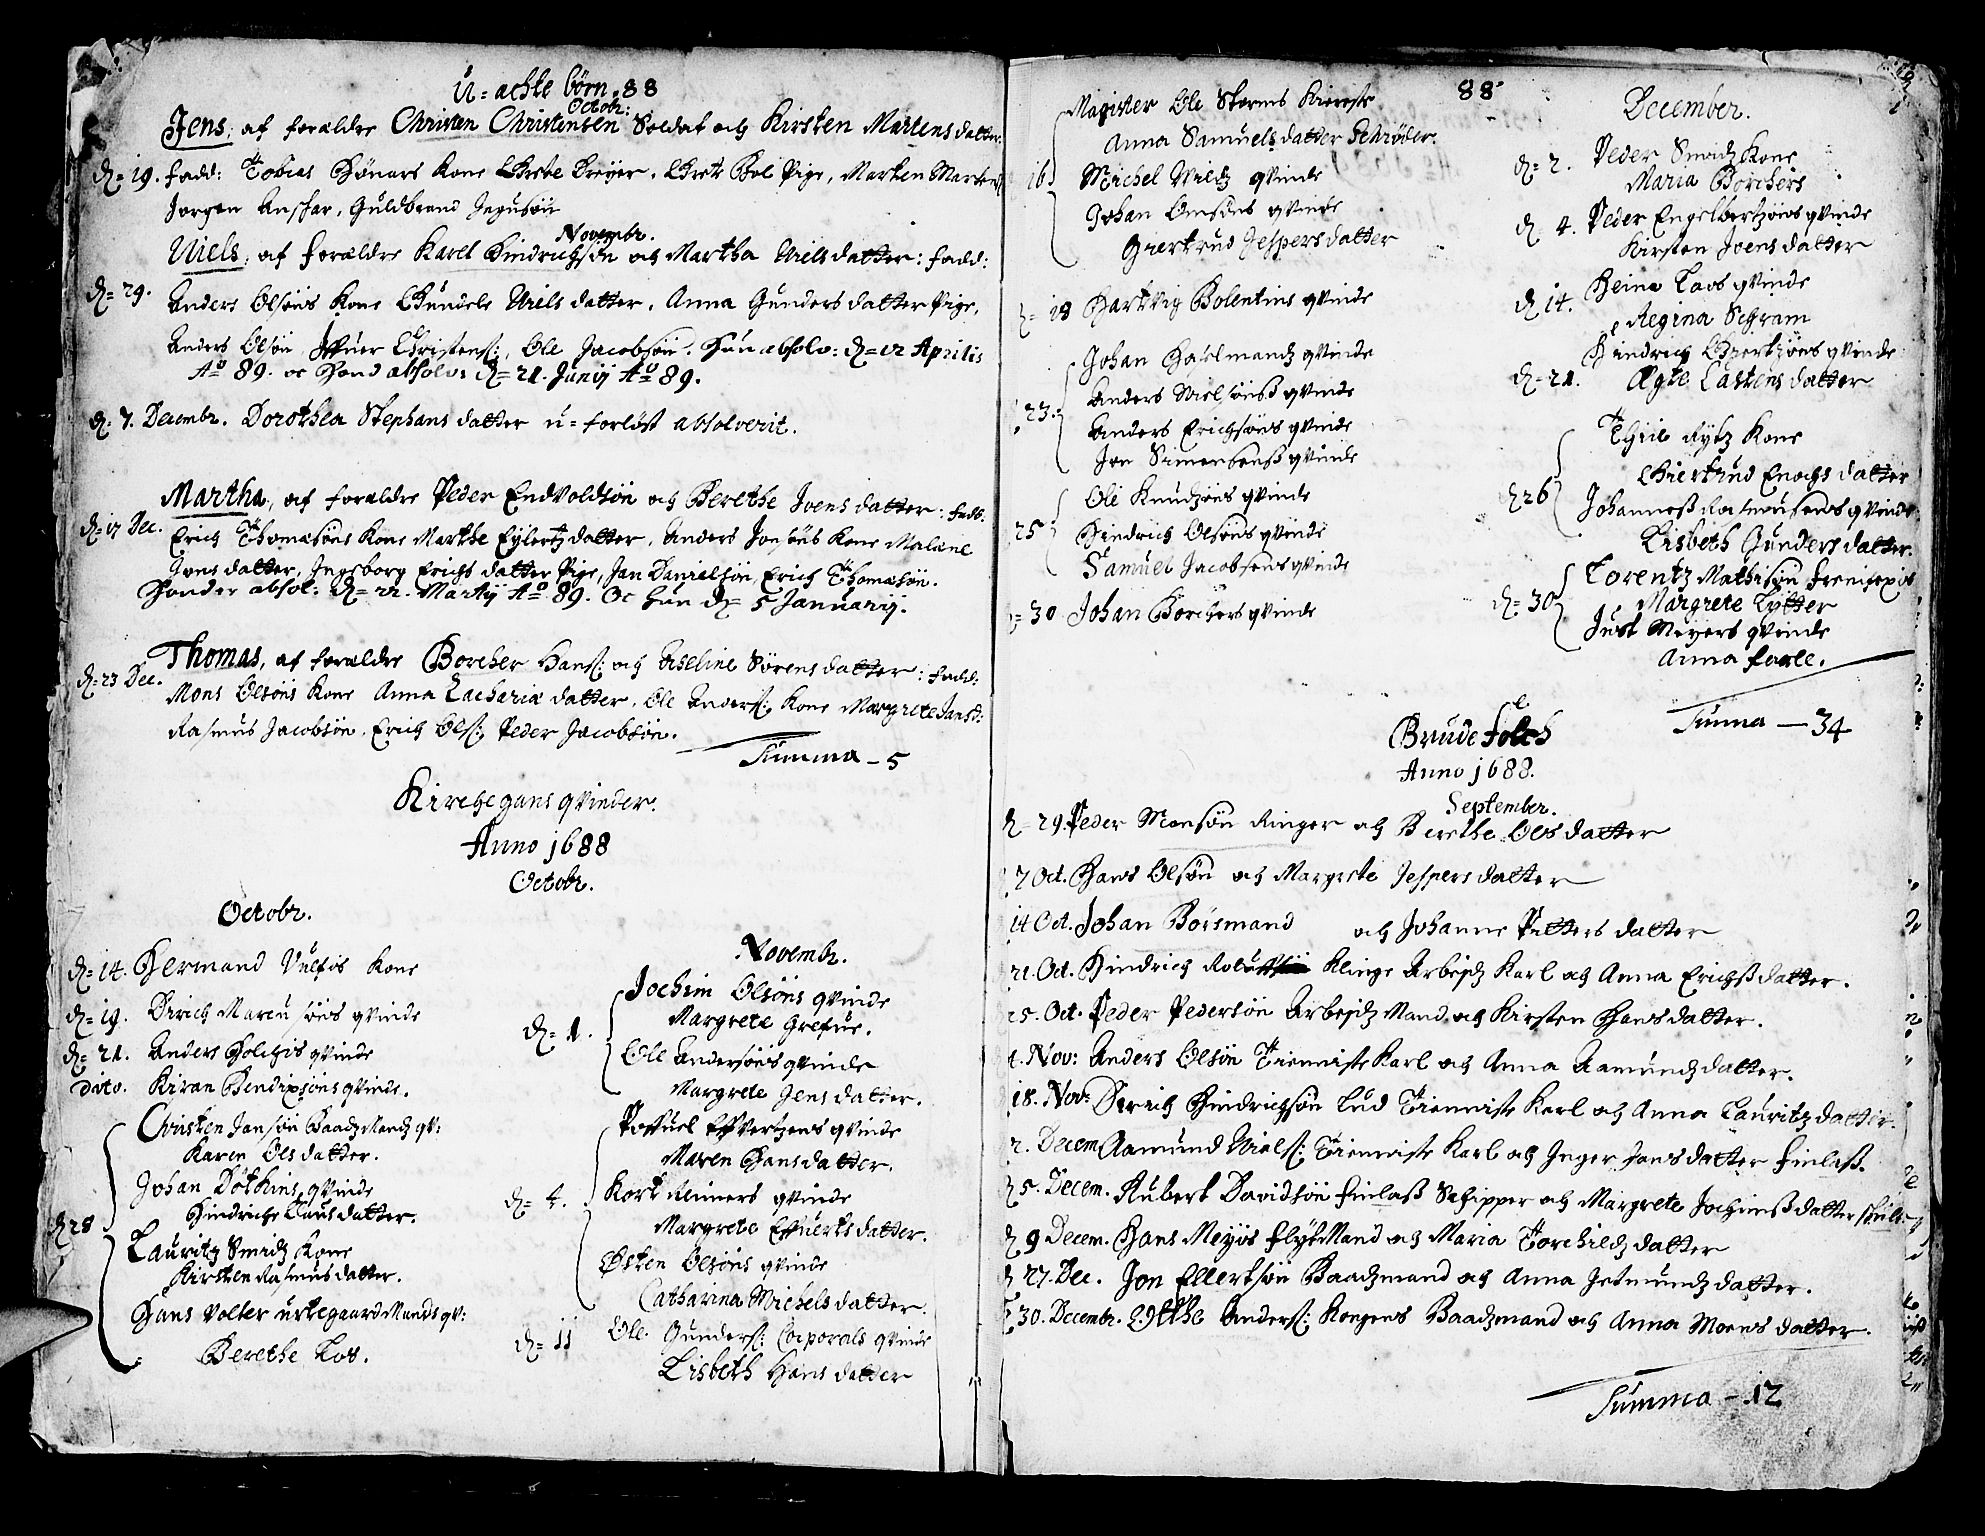 U=achte børn. 88
Octobr:
Jens, af forældre Christen Christensen Soldat och Kirsten Martens datter.
d= 19. fadd: Tobias Hönars Kone Grete Greger, Grete Bol Pige, Morten Martens
Jørgen Anskar, Guldbrand
Novembr.
Niels, af forældre Karel Hindrichsøn och Martha Niels datter: fadd:
d= 29. Anders Olsøns Kone Gundele Niels datter, Anna Gunders datter Pige,
Anders Olsøn, Christens:, Ole Jacobsøn. Hun absolv: d= 12 Aprilis
Ao 89. oc Hand absolv: d= 21. Junij Ao 89.
d= 7. Decembr. Dorothea Stephans datter u=forløst absolverit.
Martha, af forældre Peder Endvoldsøn och Berethe Joens datter: fadd:
d= 17 Dec. Erich Thomæsøns Kone Marthe Eylertz datter, Anders Jonsøns Kone Malene
Joens datter, Ingeborg Erichs datter Pige, Jan Danielsøn, Erich Thomæsøn.
Hand er absol: d= 22. Martij Ao 89. Oc hun d= 5 Januarij.
Thomas, af forældre Borcher Hans: och Aseline Sørens datter: fadd:
d= 23 Dec. Mons Olsøns Kone Anna Zachariæ datter, Ole Anders: Kone Margrete Jansd:
Rasmus Jacobsøn, Erich Ols: Peder Jacobsøn.
Summa - 5
Kirchegans qvinder.
Anno 1688
Octobr.
Octobr.
d= 14. Hermand Vulfis Kone
d= 19. Dirich Marcusøns qvinde
d= 21. Anders Holchis qvinde
dito. Kiran Bendixsøns qvinde.
Christen Jansøn Baadzmandz qv:
Karen Ols datter.
Johan Døthins qvinde
Hindriche Claus datter.
d 28 Lauritz Smidz Kone
Kirsten Rasmus datter.
Hans Volter urtegaardMands qv:
Berethe Los.
Novembr.
Jochim Olsøns qvinde
Margrete Grefue.
d= 1. Ole Andersøns qvinde
Margrete Jens datter.
Poffuel Effvertzens qvinde
Maren Hans datter.
d= 4. Kort Reiners qvinde
Margrete Effuerts datter.
Østen Olsøns qvinde
Catharina Michels datter.
d= 11 Ole Gunders: Corporals qvinde
Lisbeth Hans datter
88
Magister Ole Storms Kiereste
Anna Samuels datter Schrøder.
16 Michel Vildz qvinde
Johan Omsøns qvinde
Giertrud Jespers datter
d= 18 Hartvig Bolentins qvinde
Johan Haulmandz qvinde
23. Anders Nielsønss qvinde
Anders Erichsøns qvinde
Jon Simonsenss qvinde
Ole Knudzøns qvinde
25 Hindrich Olsøns qvinde
Samuel Jacobsens qvinde
d= 30 Johan Borchers qvinde
December.
d= 2. Peder Smidz Kone
Maria Borchers
d= 4. Peder Engelbertzøns qvinde
Kirsten Joens datter
d 14. Heine Laos qvinde
Regina Schram
Hindrich Evertzøns qvinde
d= 21. Ægte Lastens datter
Thiis Rytz Kone
Giertrud Enochs datter
d 26 Johannes Rasmusens qvinde
Lisbeth Gunders datter.
Lorentz Mathisøn
d= 30 Margrete Lytter
Just Meyers qvinde
Anna faele.
Summa - 34
Brude folch
Anno 1688.
September.
d= 29. Peder Monsøn Ringer och Berethe Ols datter
7 Oct. Hans Olsøn och Margrete Jespers datter
14 Oct. Johan Børsmand och Johanne Pitters datter
21. Oct. Hindrich Klinge Arbejdz Karl och Anna Erichss datter.
25. Oct. Peder Pedersøn Arbejdz Mand och Kirsten Hans datter.
4. Nov: Anders Olsøn Tienniste Karl och Anna Aamundz datter.
18. Nov: Dirich Hindrichsøn Lud Tienniste Karl och Anna Lauritz datter.
2. Decem. Aamund Niels: Tienniste Karl och Inger Jans datter Finlass.
d 5. Decem. Rubert Davidsøn Finlass Schipper och Margrete Jochimss datter
d 9 Decem. Hans Meyøs FlytMand och Maria Torchildz datter
d 27. Dec. Jon Ellertsøn Baadzmand och Anna Jetmundz datter.
d 30. Decembr. Otthe Anders: Kongens Baadzmand och Anna Moens datter.
Summa - 12